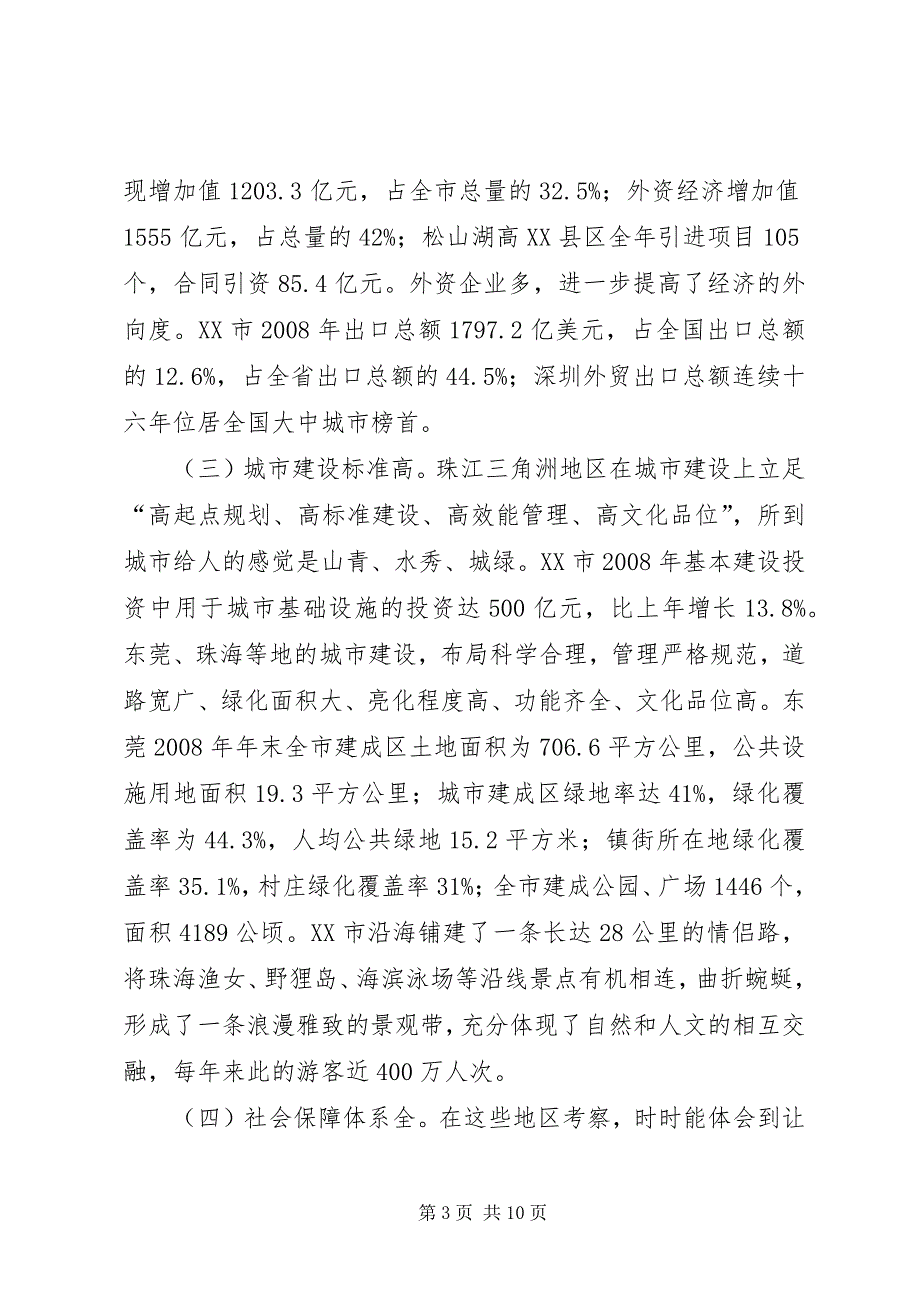 现增加值 1203.3 亿元，占全市总量的 32.5%；外资经济增加值
1555 亿元，占总量的 42%；松山湖高 XX 县区全年引进项目 105
个，合同引资 85.4 亿元。外资企业多，进一步提高了经济的外
向度。XX 市 2008 年出口总额 1797.2 亿美元，占全国出口总额
的 12.6%，占全省出口总额的 44.5%；深圳外贸出口总额连续十
六年位居全国大中城市榜首。
（三）城市建设标准高。珠江三角洲地区在城市建设上立足
“高起点规划、高标准建设、高效能管理、高文化品位”，所到
城市给人的感觉是山青、水秀、城绿。XX 市 2008 年基本建设投
资中用于城市基础设施的投资达 500 亿元，比上年增长 13.8%。
东莞、珠海等地的城市建设，布局科学合理，管理严格规范，道
路宽广、绿化面积大、亮化程度高、功能齐全、文化品位高。东
莞 2008 年年末全市建成区土地面积为 706.6 平方公里，公共设
施用地面积 19.3 平方公里；城市建成区绿地率达 41%，绿化覆
盖率为 44.3%，人均公共绿地 15.2 平方米；镇街所在地绿化覆
盖率 35.1%，村庄绿化覆盖率 31%；全市建成公园、广场 1446 个，
面积 4189 公顷。XX 市沿海铺建了一条长达 28 公里的情侣路，
将珠海渔女、野狸岛、海滨泳场等沿线景点有机相连，曲折蜿蜒，
形成了一条浪漫雅致的景观带，充分体现了自然和人文的相互交
融，每年来此的游客近 400 万人次。
（四）社会保障体系全。在这些地区考察，时时能体会到让
第 3 页 共 10 页